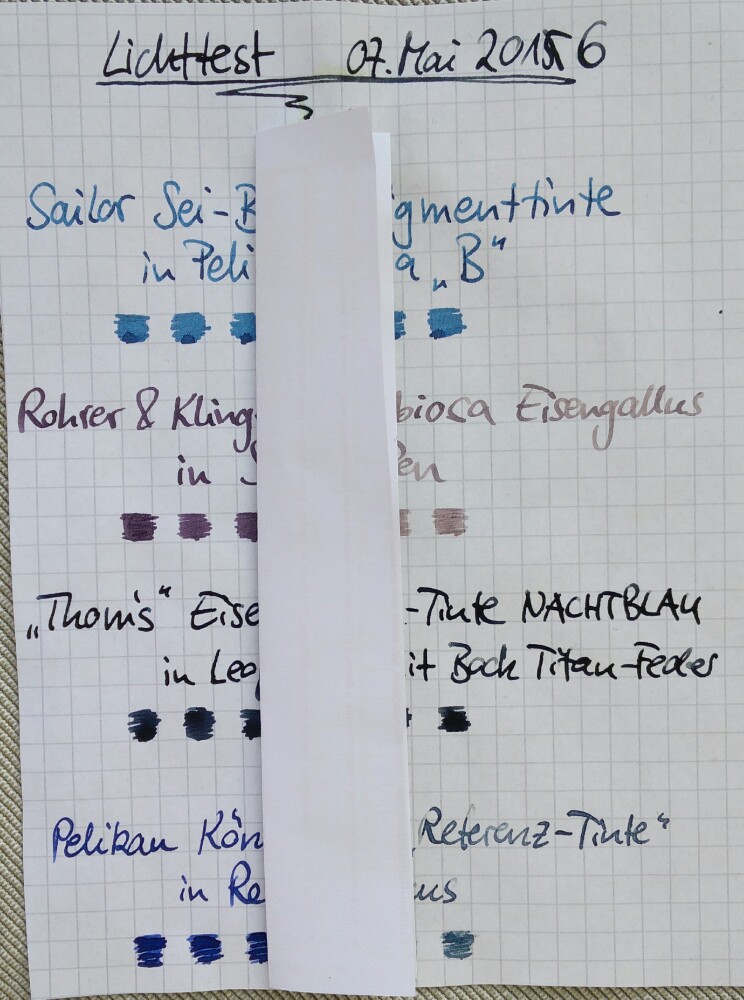 Lichttest 07. Mai 2016
Sailor Sei-B gmenttinte
in Peli a „B“
Rohrer & Kling- biosa Eisengallus
in S Pen
„Thom's“ Eise -Tinte NACHTBLAU
in Leo it Bock Titan-Feder
Pelikan Kön „Referenz-Tinte“
in Re us